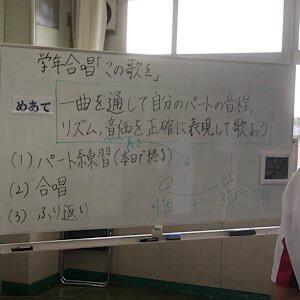 学年合唱「この歌を」
めあて
一曲を通して自分のパートの音程,
リズム,音価を正確に表現して歌おう
(1) パート練習(本日で終る)
(2) 合唱
(3) ふり返り
4拍 + 3拍 = 7拍